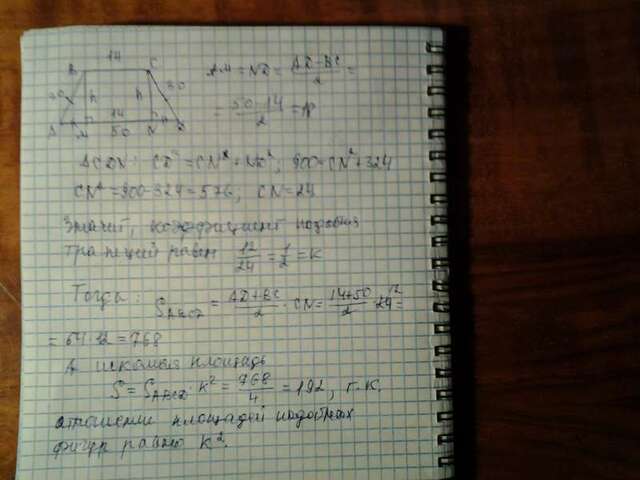 14
B C
30 h h 30
14
A M 50 N D
AM = ND = (AD - BC)/2 =
= (50 - 14)/2 = 18
ΔCDN: CD² = CN² + ND²; 900 = CN² + 324
CN² = 900 - 324 = 576; CN = 24
Значит, коэффициент подобия
трапеций равен 12/24 = 1/2 = K
Тогда: S_ABCD = (AD + BC)/2 · CN = (14 + 50)/2 · 24 12 =
= 64 · 12 = 768
А искомая площадь
S = S_ABCD · K² = 768/4 = 192, т.к.
отношении площадей подобных
фигур равны K².